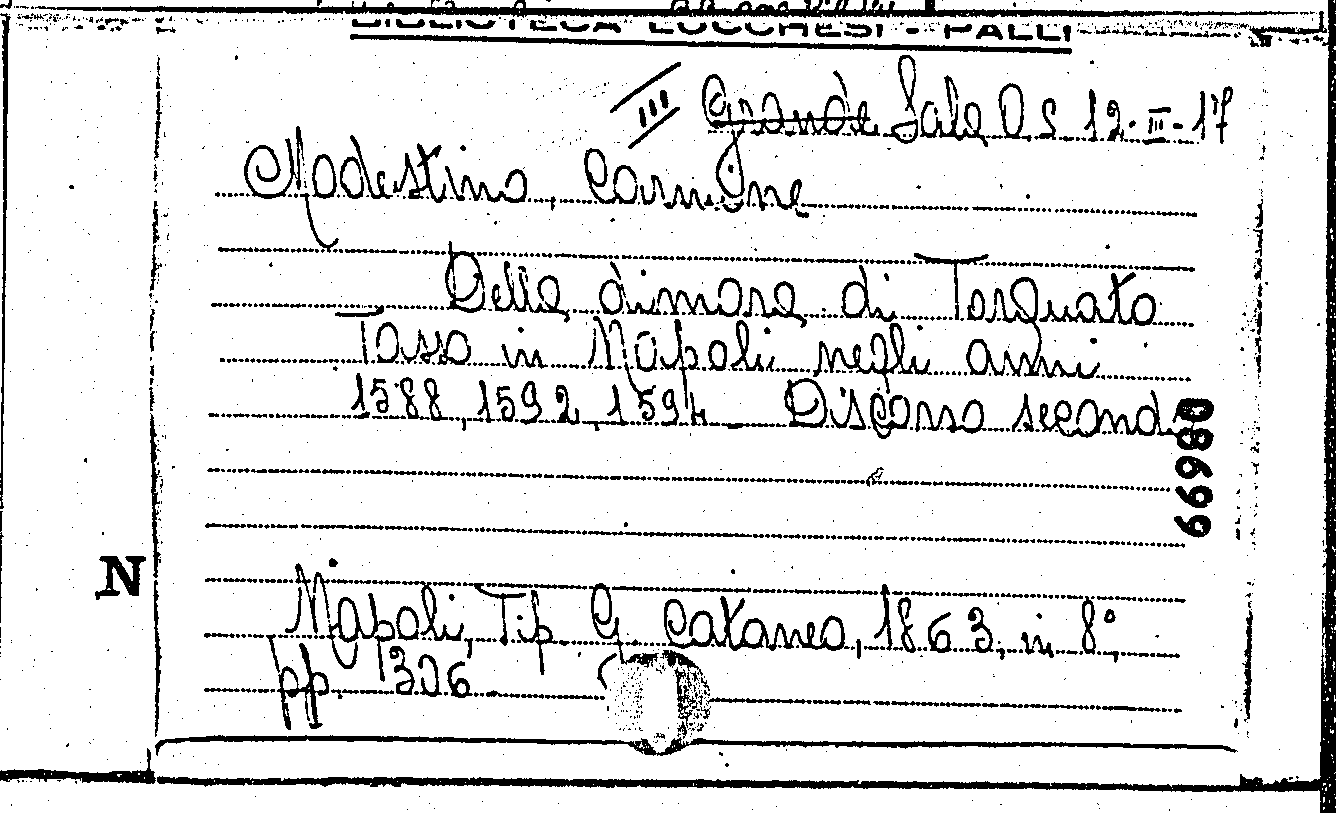 BIBLIOTECA LUCCHESI - PALLI
III Grande Sala O S 12-III-17
Modestino, Carmine
Della dimora di Torquato
Tasso in Napoli negli anni
1588, 1592, 1594 Discorso secondo
66980
N
Napoli, Tip. G. Cataneo, 1863, in 8°,
pp. 306